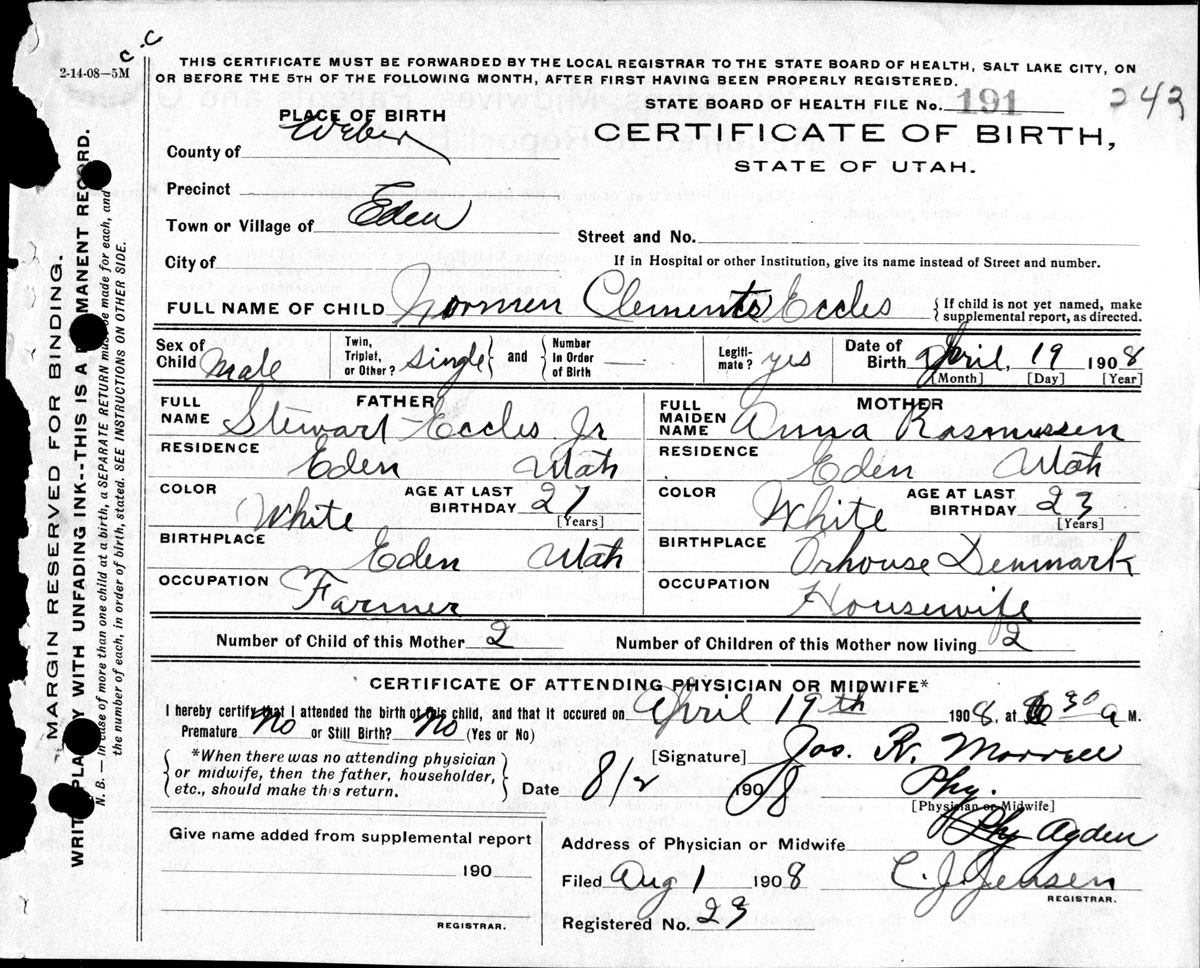 2-14-08—5M
c-c
THIS CERTIFICATE MUST BE FORWARDED BY THE LOCAL REGISTRAR TO THE STATE BOARD OF HEALTH, SALT LAKE CITY, ON
OR BEFORE THE 5TH OF THE FOLLOWING MONTH, AFTER FIRST HAVING BEEN PROPERLY REGISTERED.
STATE BOARD OF HEALTH FILE No. 191 242
PLACE OF BIRTH
CERTIFICATE OF BIRTH,
STATE OF UTAH.
County of Weber
Precinct
Town or Village of Eden
Street and No.
City of
If in Hospital or other Institution, give its name instead of Street and number.
FULL NAME OF CHILD Norman Clements Eccles {If child is not yet named, make
supplemental report, as directed.
Sex of Child Male Twin, Triplet, or Other? single} and {Number In Order of Birth Legiti- mate? yes Date of Birth April, 19 1908
[Month] [Day] [Year]
FATHER MOTHER
FULL NAME Stewart Eccles Jr FULL MAIDEN NAME Anna Rasmussen
RESIDENCE Eden Utah RESIDENCE Eden Utah
COLOR White AGE AT LAST BIRTHDAY 27 [Years] COLOR White AGE AT LAST BIRTHDAY 23 [Years]
BIRTHPLACE Eden Utah BIRTHPLACE Orhouse Denmark
OCCUPATION Farmer OCCUPATION Housewife
Number of Child of this Mother 2 Number of Children of this Mother now living 2
CERTIFICATE OF ATTENDING PHYSICIAN OR MIDWIFE*
I hereby certify that I attended the birth of this child, and that it occured on April 19th 1908, at 6 30 a M.
Premature No or Still Birth? No (Yes or No)
{*When there was no attending physician
or midwife, then the father, householder,
etc., should make this return.}
[Signature] Jos. R. Morrell
Date 8/2 1908 Phy.
[Physician or Midwife]
Address of Physician or Midwife Phy Ogden
Give name added from supplemental report
190
REGISTRAR.
Filed Aug 1 1908 C. J. Jensen
REGISTRAR.
Registered No. 23
MARGIN RESERVED FOR BINDING.
WRITE PLAINLY WITH UNFADING INK--THIS IS A PERMANENT RECORD.
N. B.—In case of more than one child at a birth, a SEPARATE RETURN must be made for each, and
the number of each, in order of birth, stated. SEE INSTRUCTIONS ON OTHER SIDE.